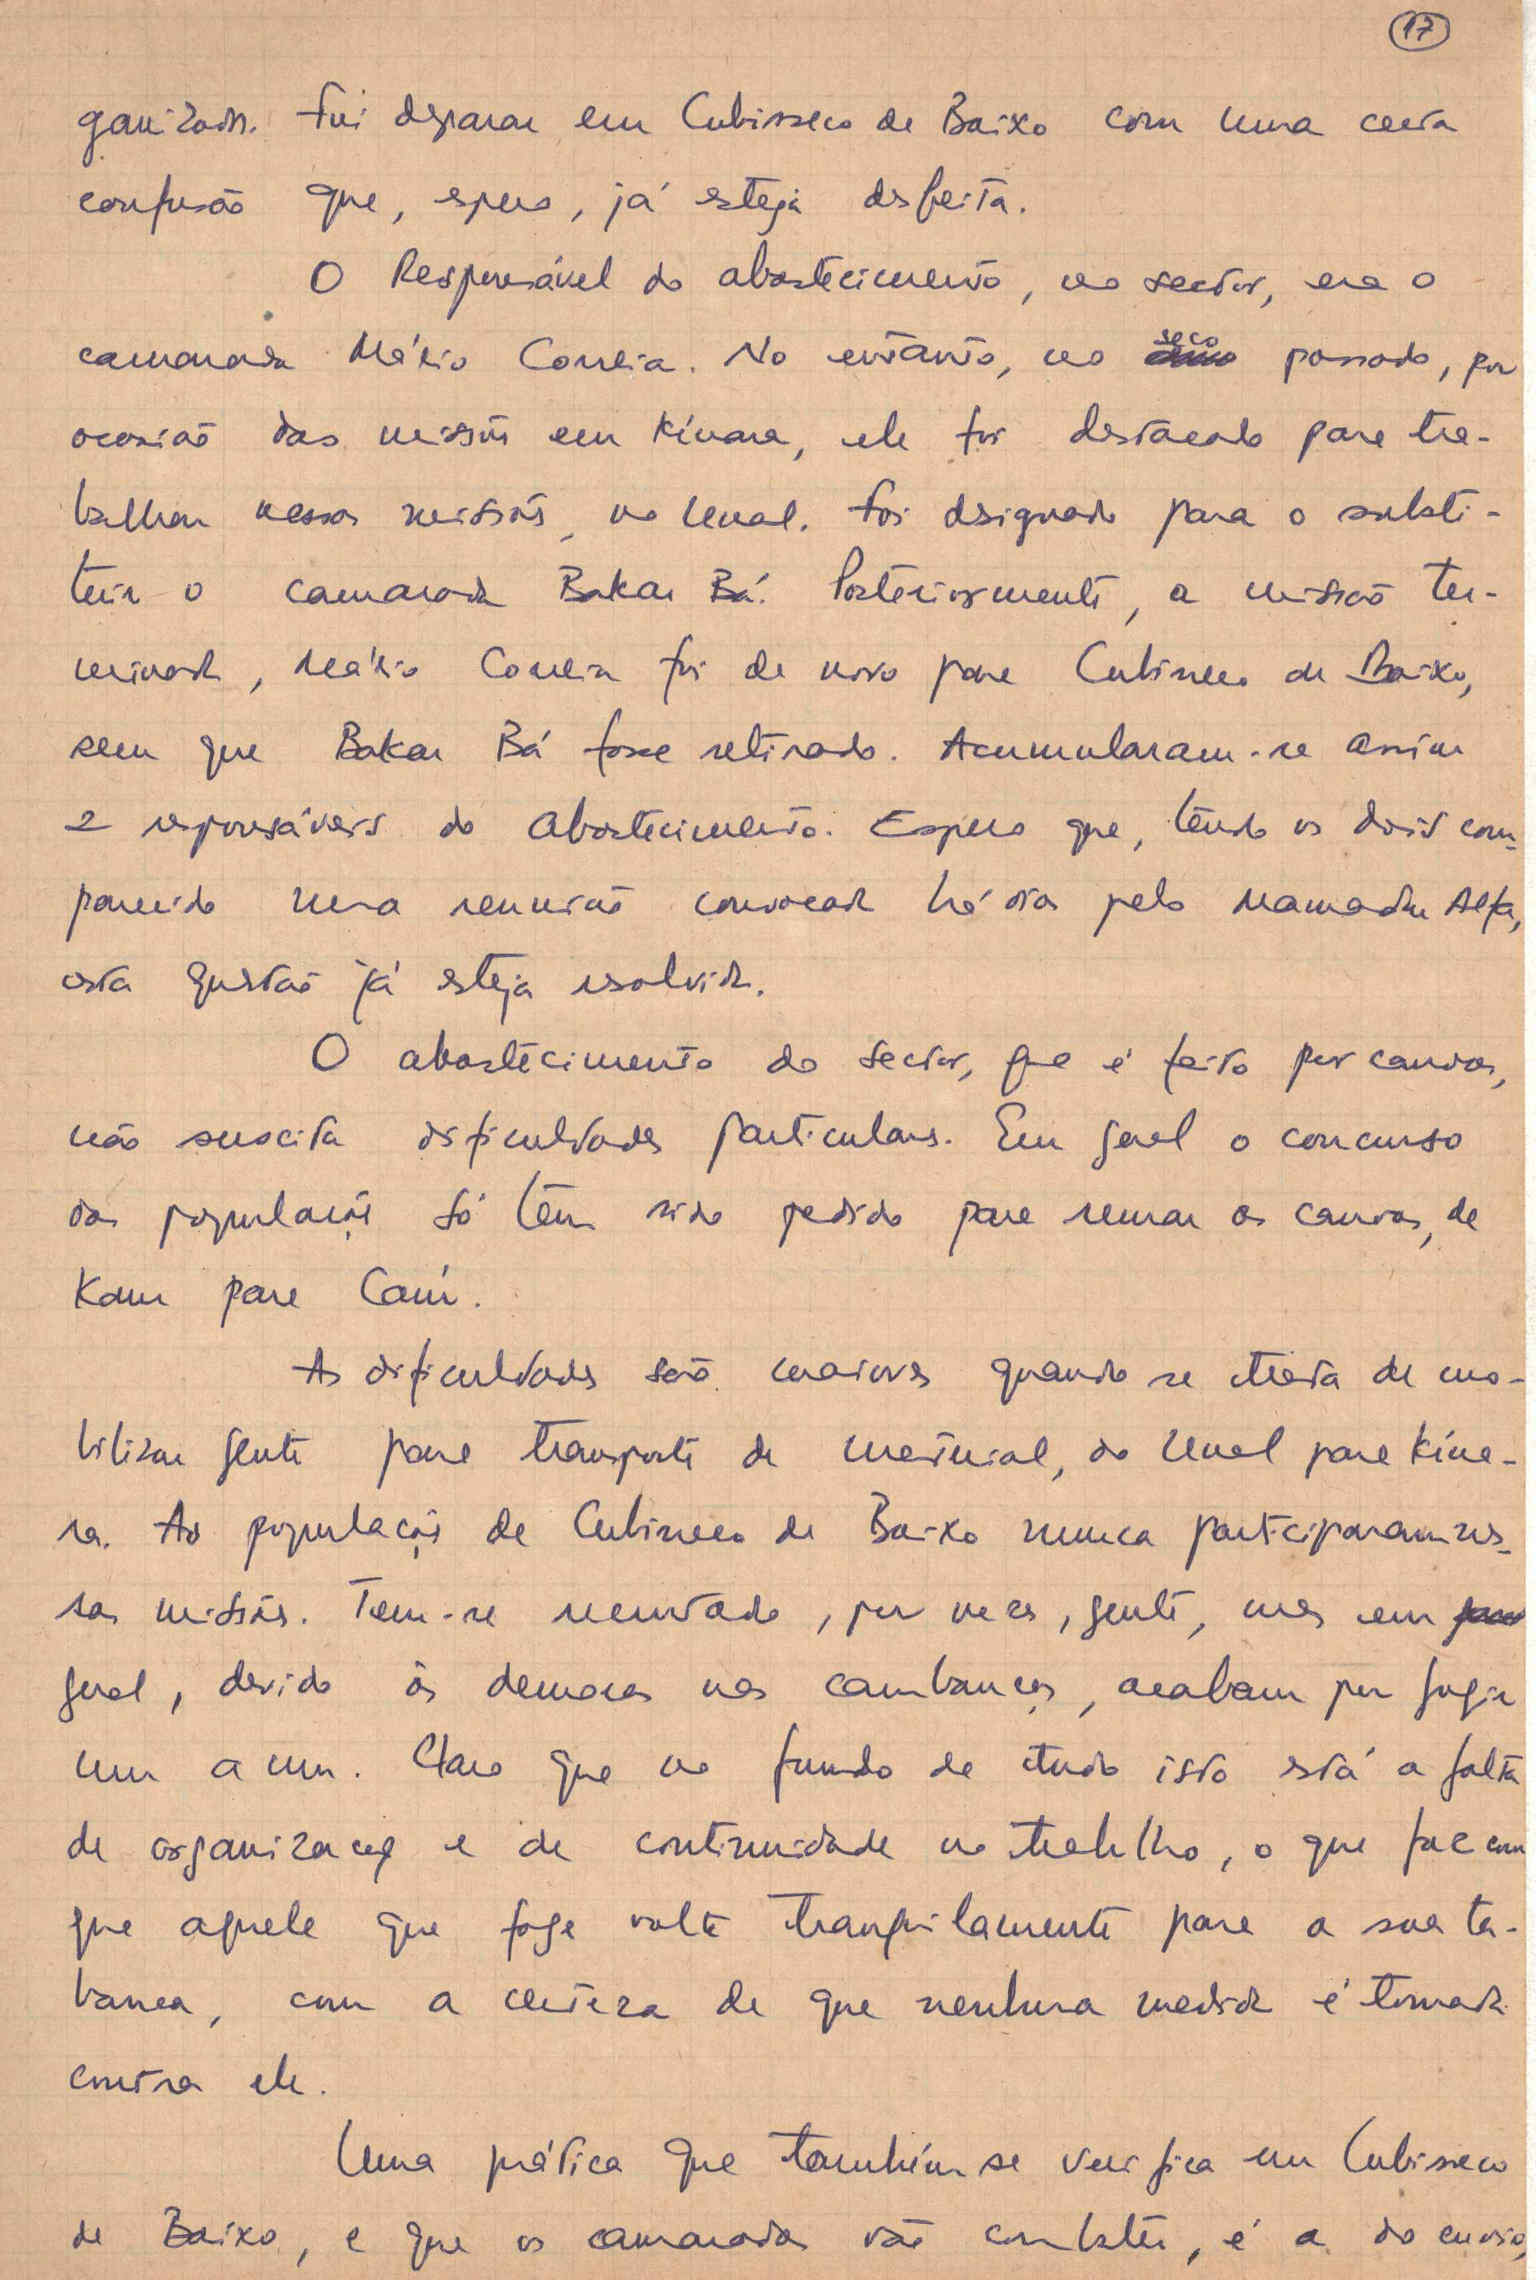 17
ganizado. Fui deparar em Cubisseco de Baixo com uma certa
confusão que, espero, já esteja desfeita.
O Responsável do abastecimento, no sector, era o
camarada Mário Correia. No entanto, no seco passado, por
ocasião das missões em Kínara, ele foi destacado para tra-
balhar nessas missões, no Unal. Foi designado para o substi-
tuir o camarada Bakar Bá. Posteriormente, a missão ter-
minada, Mário Correia foi de novo para Cubisseco de Baixo,
sem que Bakar Bá fosse retirado. Acumularam-se assim
2 responsáveis do abastecimento. Espero que, tendo os dois com-
parecido numa reunião convocada há dias pelo Mamadu Alfa,
esta questão já esteja resolvida.
O abastecimento do sector, que é feito por canoas,
não suscita dificuldades particulares. Em geral o concurso
das populações só tem sido pedido para remar as canoas, de
Kam para Caur.
As dificuldades são maiores quando se trata de mo-
bilizar gente para transporte de material, do Unal para Kína-
ra. As populações de Cubisseco de Baixo nunca participaram nes-
sas missões. Tem-se recrutado, por vezes, gente, mas em
geral, devido às demoras nas cambanças, acabam por fugir
um a um. Claro que no fundo de tudo isto está a falta
de organização e de continuidade no trabalho, o que faz com
que aquele que foge volte tranquilamente para a sua ta-
banca, com a certeza de que nenhuma medida é tomada
contra ele.
Uma prática que também se verifica em Cubisseco
de Baixo, e que os camaradas vão combater, é a do envio,